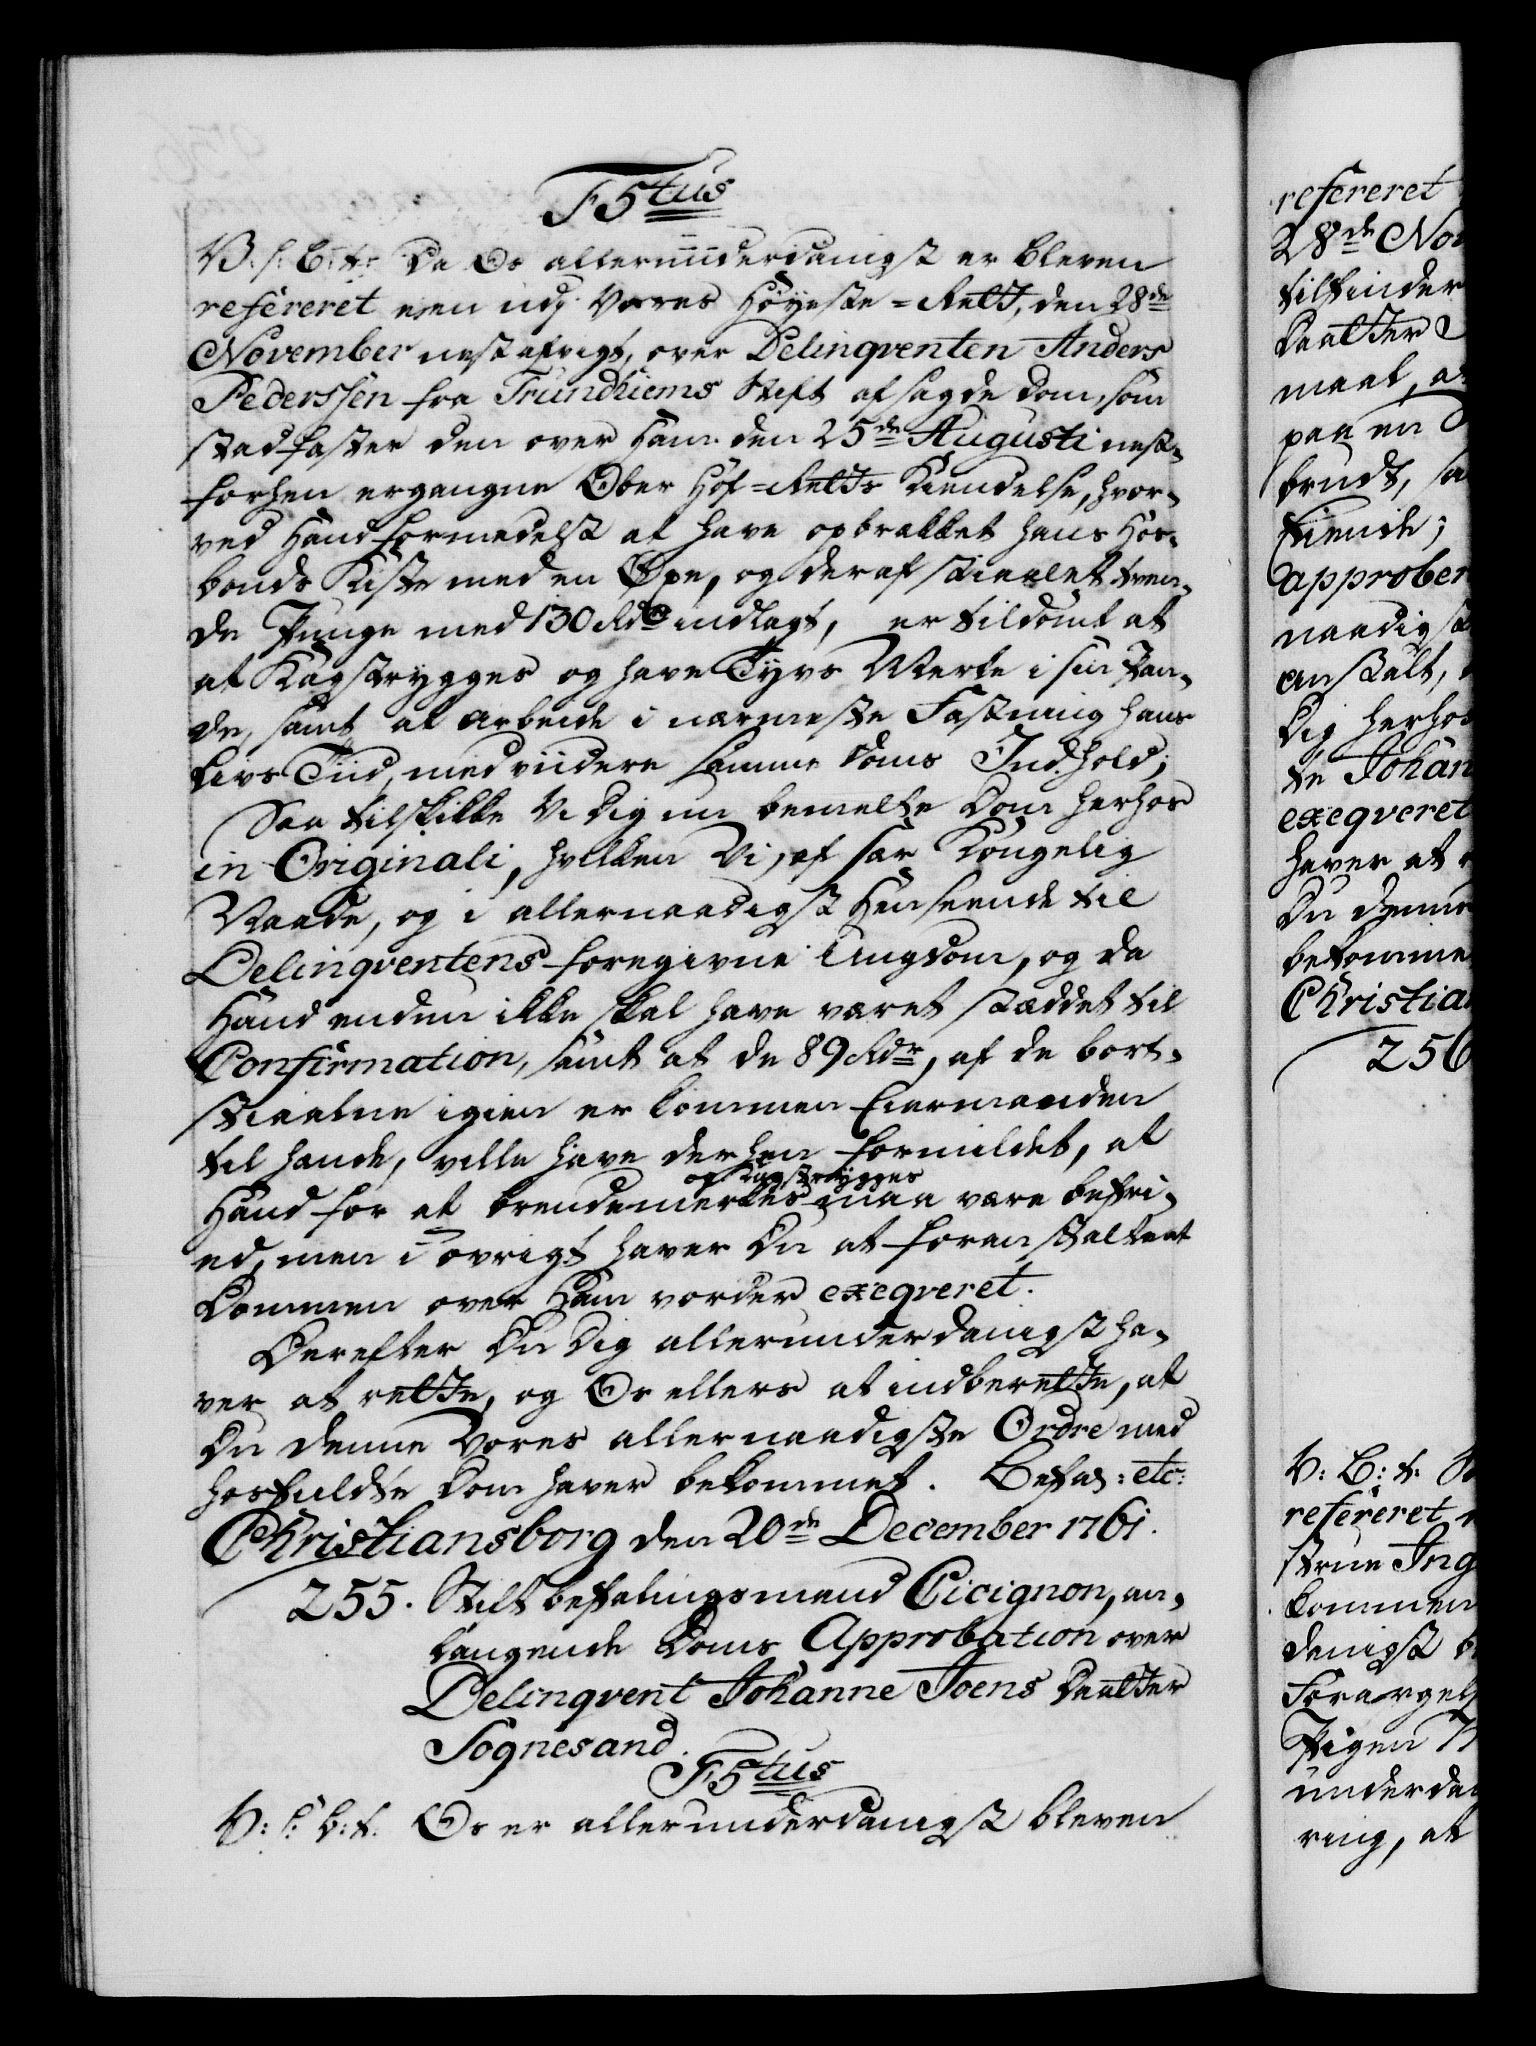 F5tus
V: s: B: t: Da Os allerunderdanigst er bleven
refereret een udj Vores Höyeste=Rett, den 28de
November nest afvigt, over Delinqventen Anders
Pederssen fra Trundhiems Stift afsagde Dom, som
stadfæster den over Ham den 25de Augusti nest-
forhen ergangne Ober Hof=Retts Kiendelse, hvor-
ved Hand formedelst at have opbrækket hans Hos-
bonds Kiste med en Öxe, og deraf stiaalet tven-
de Punge med 130 Rdr indlagt, er tildömt at
at Kagstrygges og have Tyvs Merke i sin Pan-
de, samt at arbeide i nærmeste Fæstning hans
Livs Tiid, med viidere samme Doms Indhold;
Saa tilskikke Vi Dig nu bemelte Dom herhos
in Originali, hvilken Vi, af sær Kongelig
Naade, og i allernaadigst Henseende til
Delinqventens foregivne Ungdom, og da
Hand enden ikke skal have været stæddet til
Confirmation, samt at de 89 Rdr, af de bort-
stiaalne igien er kommen Eiermanden
til hænde, ville have derhen formildet, at
Hand for at brendemerkes og Kagstrygges maa være befri-
ed, men i övrigt haver Du at foranstalte at
Dommen over Ham vorder exeqveret.
Derefter Du Dig allerunderdanigst ha-
ver at rette, og Os ellers at indberette, at
Du denne Vores allernaadigste Ordre med
hosfuldte Dom haver bekommet. Befal: etc:
Christiansborg den 20de December 1761.
255. Stiftbefalingsmand Cicignon, an-
langende Doms Approbation over
Delinqvent Johanne Joens Daatter
Sognesand.
F5tus
V: s: B: t: Os er allerunderdanigst bleven
refereret
28de Nov
tilfinder
Daatter
maal, a
paa en
brudt, sa
kiende;
approber
naadigst
anstalt,
Dig herhos
te Johan
exeqveret
haver at
Du denne
bekomme
Christia
256
V: B: t:
refereret
strue Ing
kommen
danigst b
Forargel
Pigen
underda
ring, at